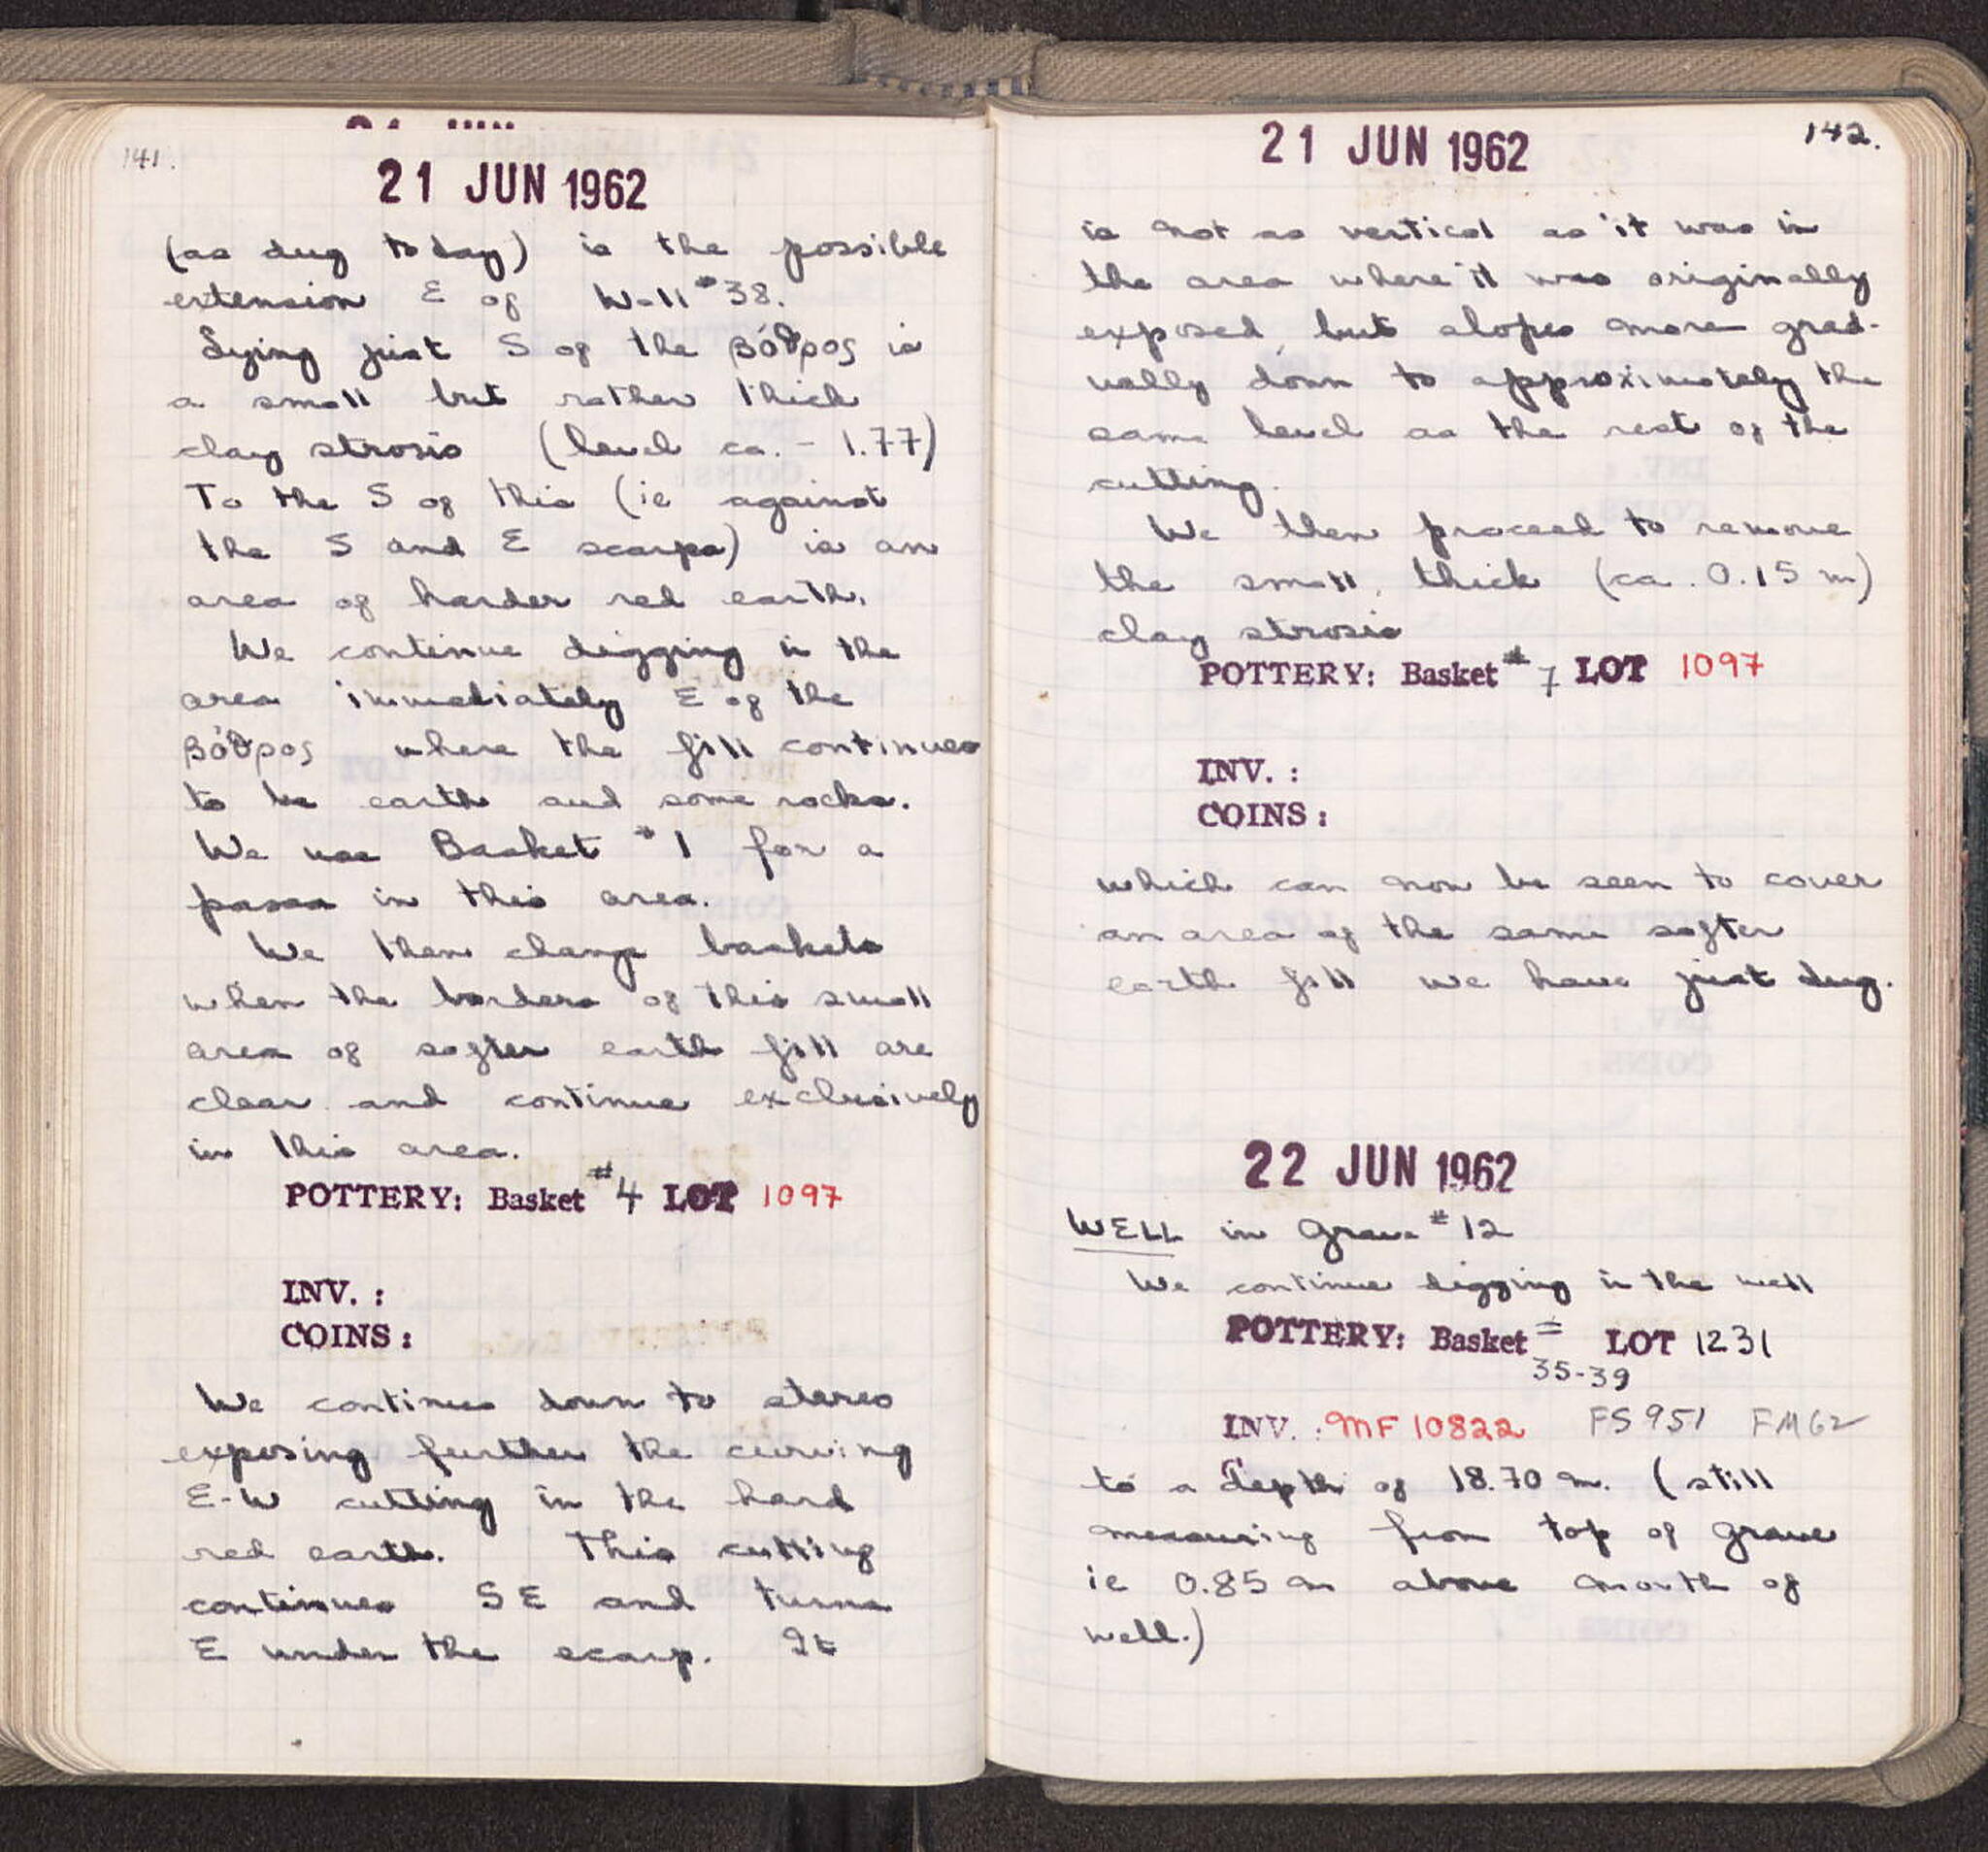 141.
21 JUN 1962
(as dug today) is the possible
extension E of Wall #38.
Lying just S of the βόθρος is
a small but rather thick
clay strosis (level ca. - 1.77)
To the S of this (ie against
the S and E scarps) is an
area of harder red earth.
We continue digging in the
area immediately E of the
βόθρος where the fill continues
to be earth and some rocks.
We use Basket #1 for a
passa in this area.
We then change baskets
when the borders of this small
area of softer earth fill are
clear and continue exclusively
in this area.
POTTERY: Basket #4 LOT 1097
INV. :
COINS :
We continue down to stereo
exposing further the curving
E-W cutting in the hard
red earth. This cutting
continues SE and turns
E under the scarp. It
21 JUN 1962
142.
is not as vertical as it was in
the area where it was originally
exposed, but slopes more grad-
ually down to approximately the
same level as the rest of the
cutting.
We then proceed to remove
the small, thick (ca. 0.15 m)
clay strosis
POTTERY: Basket #7 LOT 1097
INV. :
COINS :
which can now be seen to cover
an area of the same softer
earth fill we have just dug.
22 JUN 1962
WELL in Grave #12
We continue digging in the well
POTTERY: Basket = LOT 1231
35-39
INV. : MF 10822 FS 951 FM62
to a depth of 18.70 m. (still
measuring from top of grave
ie 0.85 m above mouth of
well.)